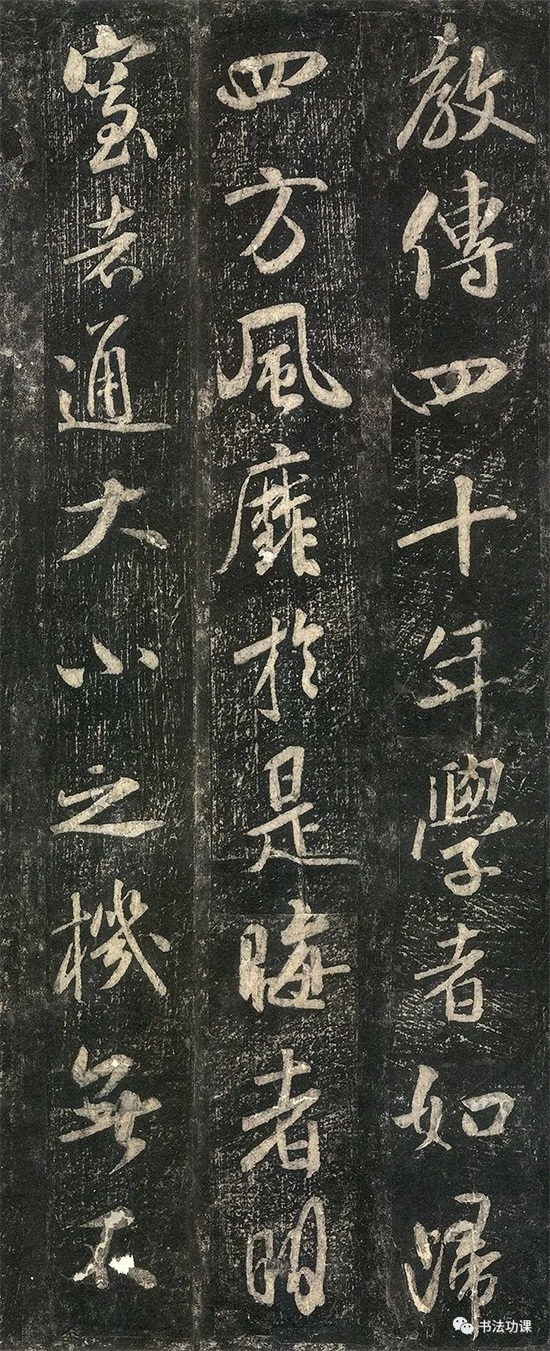 教傳四十年學者如歸
四方風靡於是晦者明
窒者通大小之機無不
书法功课